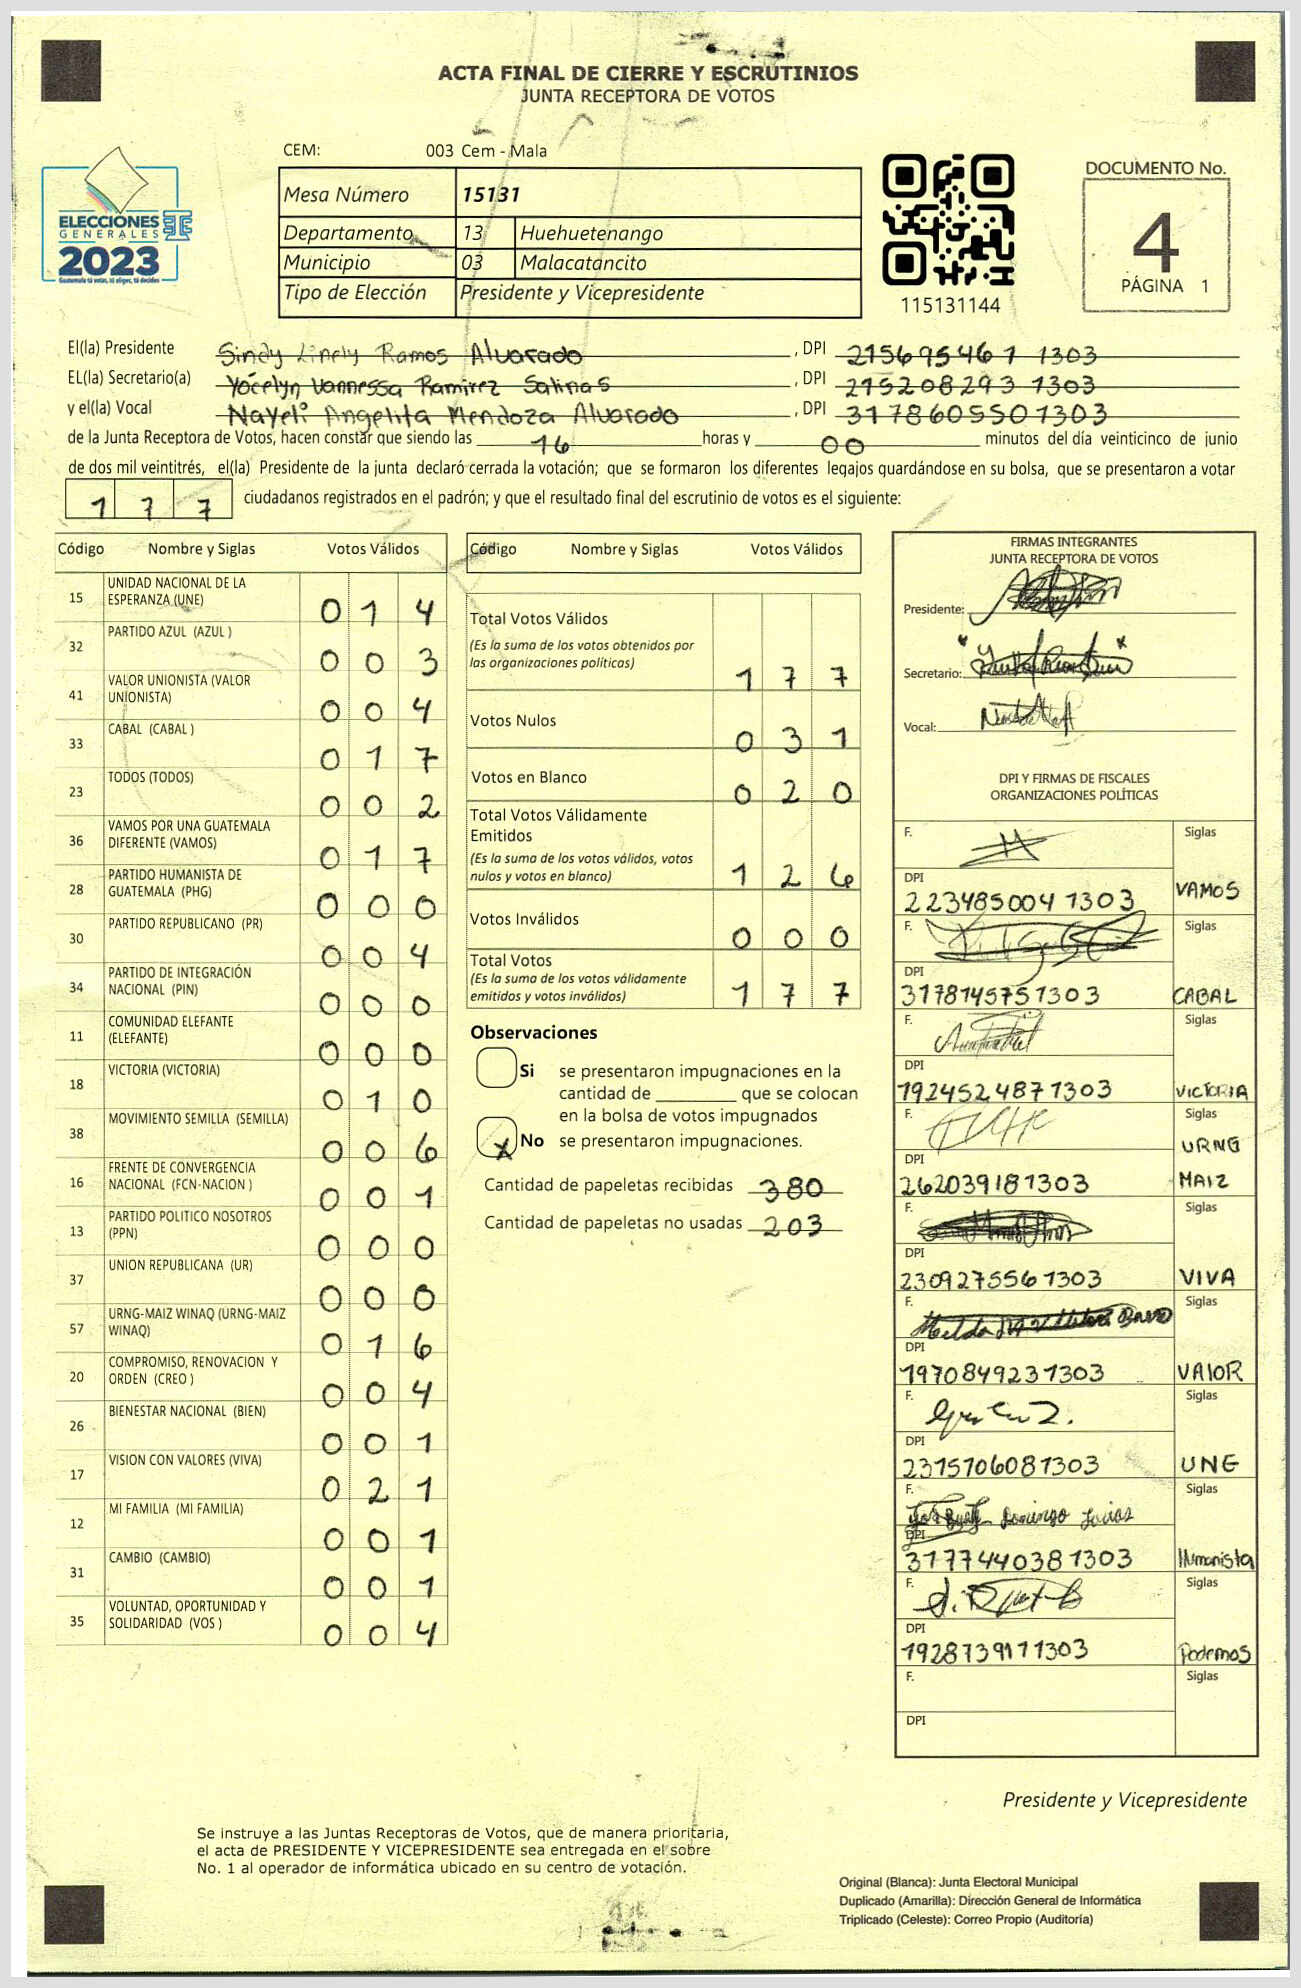 ACTA FINAL DE CIERRE Y ESCRUTINIOS
JUNTA RECEPTORA DE VOTOS
CEM: 003 Cem - Mala
ELECCIONES
GENERALES
2023
Guatemala tú votas, tú eliges, tú decides
Mesa Número 15131
Departamento 13 Huehuetenango
Municipio 03 Malacatancito
Tipo de Elección Presidente y Vicepresidente
115131144
DOCUMENTO No.
4
PÁGINA 1
El(la) Presidente Sindy Linely Ramos Alvarado , DPI 215695461 1303
EL(la) Secretario(a) Yocelyn Vannessa Ramirez Salinas , DPI 215208293 1303
y el(la) Vocal Nayeli Angelita Mendoza Alvarado , DPI 3178605501303
de la Junta Receptora de Votos, hacen constar que siendo las 16 horas y 00 minutos del día veinticinco de junio
de dos mil veintitrés, el(la) Presidente de la junta declaró cerrada la votación; que se formaron los diferentes legajos guardándose en su bolsa, que se presentaron a votar
177 ciudadanos registrados en el padrón; y que el resultado final del escrutinio de votos es el siguiente:
Código Nombre y Siglas Votos Válidos
15 UNIDAD NACIONAL DE LA ESPERANZA (UNE) 014
32 PARTIDO AZUL (AZUL ) 003
41 VALOR UNIONISTA (VALOR UNIONISTA) 004
33 CABAL (CABAL ) 017
23 TODOS (TODOS) 002
36 VAMOS POR UNA GUATEMALA DIFERENTE (VAMOS) 017
28 PARTIDO HUMANISTA DE GUATEMALA (PHG) 000
30 PARTIDO REPUBLICANO (PR) 004
34 PARTIDO DE INTEGRACIÓN NACIONAL (PIN) 000
11 COMUNIDAD ELEFANTE (ELEFANTE) 000
18 VICTORIA (VICTORIA) 010
38 MOVIMIENTO SEMILLA (SEMILLA) 006
16 FRENTE DE CONVERGENCIA NACIONAL (FCN-NACION ) 001
13 PARTIDO POLITICO NOSOTROS (PPN) 000
37 UNION REPUBLICANA (UR) 000
57 URNG-MAIZ WINAQ (URNG-MAIZ WINAQ) 016
20 COMPROMISO, RENOVACION Y ORDEN (CREO ) 004
26 BIENESTAR NACIONAL (BIEN) 001
17 VISION CON VALORES (VIVA) 021
12 MI FAMILIA (MI FAMILIA) 001
31 CAMBIO (CAMBIO) 001
35 VOLUNTAD, OPORTUNIDAD Y SOLIDARIDAD (VOS ) 004
Código Nombre y Siglas Votos Válidos
Total Votos Válidos
(Es la suma de los votos obtenidos por
las organizaciones políticas) 177
Votos Nulos 031
Votos en Blanco 020
Total Votos Válidamente
Emitidos
(Es la suma de los votos válidos, votos
nulos y votos en blanco) 126
Votos Inválidos 000
Total Votos
(Es la suma de los votos válidamente
emitidos y votos inválidos) 177
Observaciones
Si se presentaron impugnaciones en la
cantidad de ________ que se colocan
en la bolsa de votos impugnados
X No se presentaron impugnaciones.
Cantidad de papeletas recibidas 380
Cantidad de papeletas no usadas 203
FIRMAS INTEGRANTES
JUNTA RECEPTORA DE VOTOS
Presidente:
Secretario:
Vocal:
DPI Y FIRMAS DE FISCALES
ORGANIZACIONES POLÍTICAS
F. Siglas
DPI
223485004 1303 VAMOS
F. Siglas
DPI
3178145751303 CABAL
F. Siglas
DPI
1924524871303 VICTORIA
F. Siglas
URNG
DPI
262039181303 MAIZ
F. Siglas
DPI
2309275561303 VIVA
F. Siglas
DPI
1970849231303 VALOR
F. Siglas
DPI
2315706081303 UNE
F. Domingo Siglas
DPI
3177440381303 Humanista
F. Siglas
DPI
1928739171303 Podemos
F. Siglas
DPI
Presidente y Vicepresidente
Se instruye a las Juntas Receptoras de Votos, que de manera prioritaria,
el acta de PRESIDENTE Y VICEPRESIDENTE sea entregada en el sobre
No. 1 al operador de informática ubicado en su centro de votación.
Original (Blanca): Junta Electoral Municipal
Duplicado (Amarilla): Dirección General de Informática
Triplicado (Celeste): Correo Propio (Auditoría)